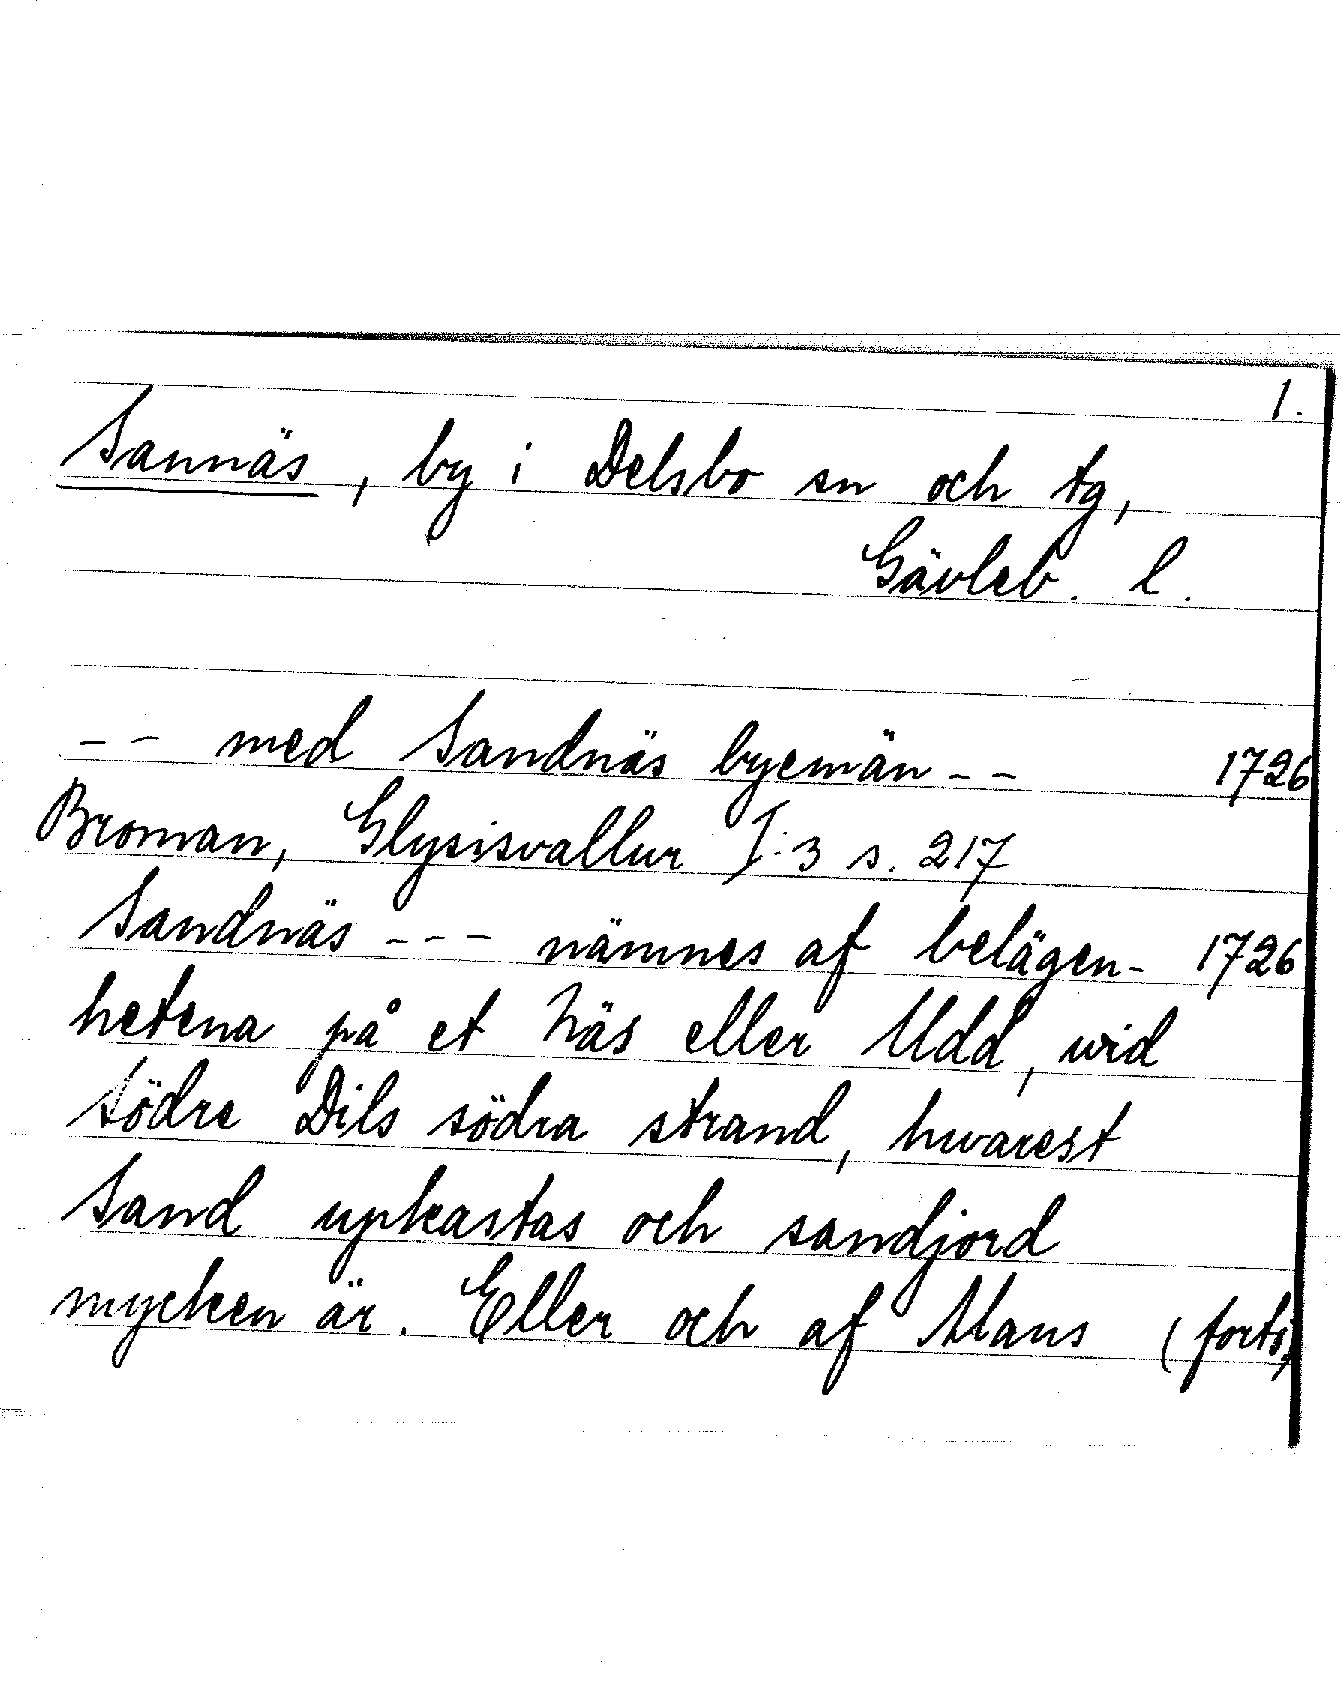 1.
Sannäs, by i Delsbo sn och tg,
Gävleb. l.
-- med Sandnäs byemän -- 1726
Broman, Glysisvallur I:3 s. 217
Sandnäs --- nämnes af belägen- 1726
hetena på et Näs eller Udd, wid
södre Dils södra strand, hwarest
Sand upkastas och sandjord
mycken är. Eller och af Mans (forts)